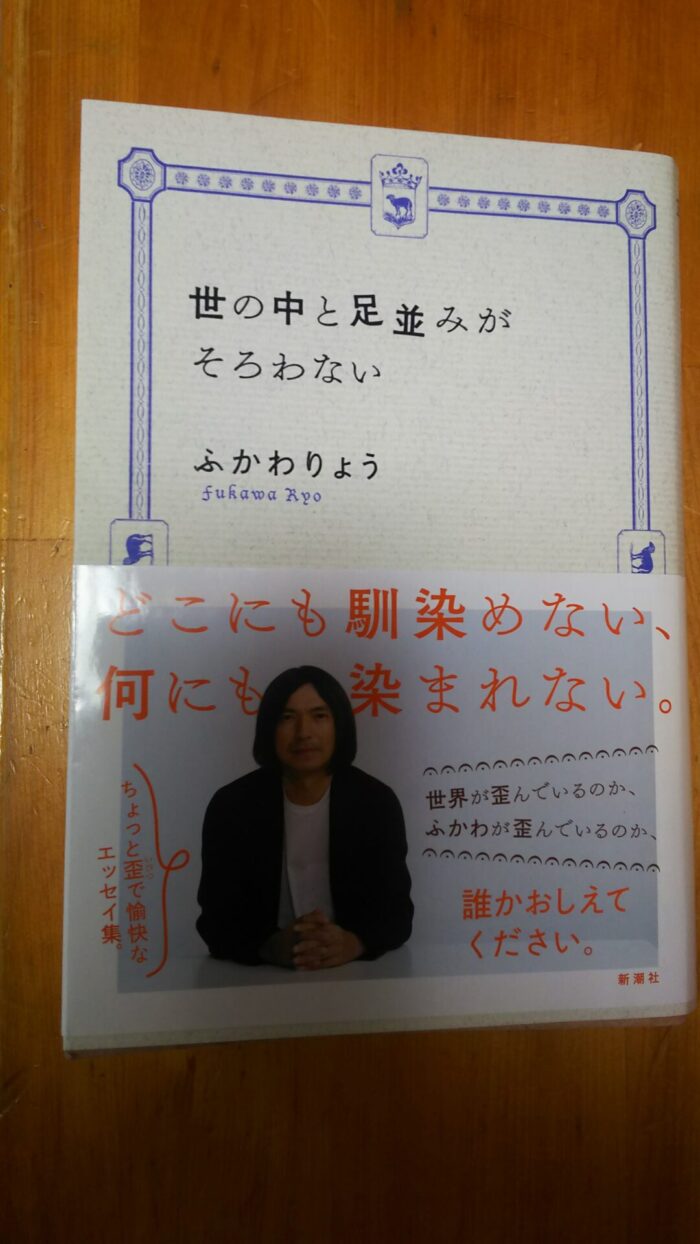 世の中と足並みが
そろわない
ふかわりょう
Fukawa Ryo
どこにも馴染めない、
何にも染まれない。
世界が歪んでいるのか、
ふかわが歪んでいるのか、
誰かおしえて
ください。
ちょっと歪で愉快な
いびつ
エッセイ集。
新潮社